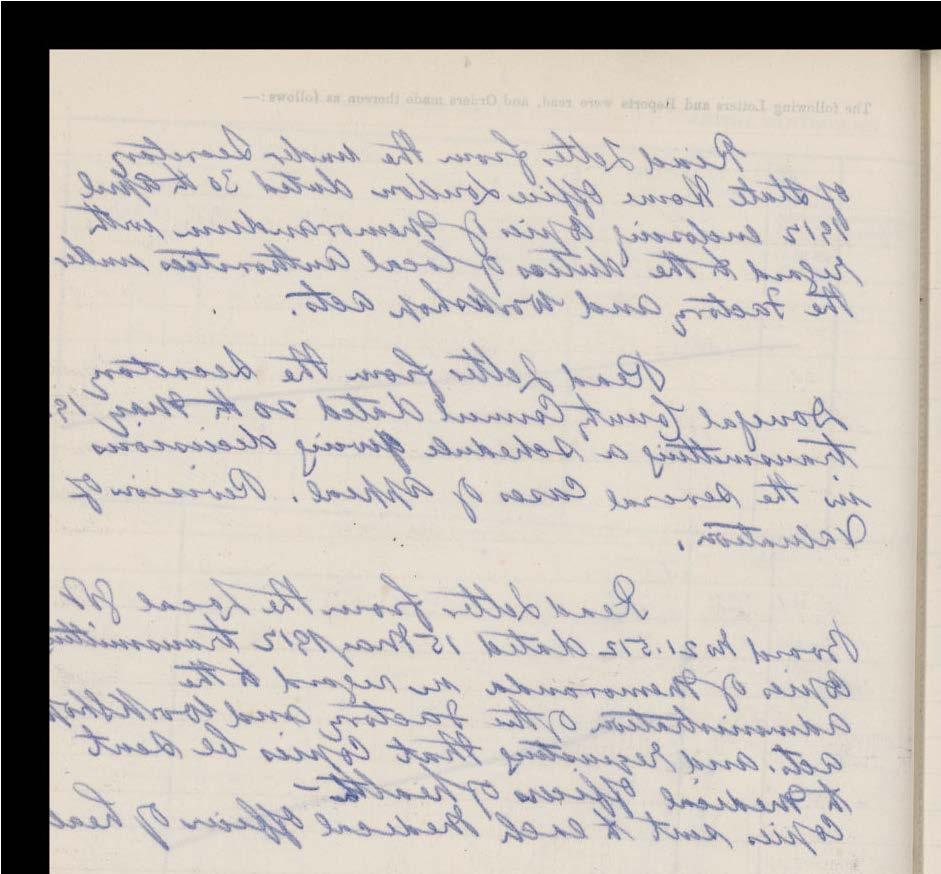 The following Letters and Reports were read, and Orders made thereon as follows:—
Read Letter from the under Secretary
of State Home Office London dated 30th April
1912 enclosing Copies of Memorandum with
regard to the duties of Local Authorities under
the Factory and Workshop acts.
Read Letter from the Secretary
Donegal County Council dated 20th May 19
transmitting a schedule giving decisions
in the several Cases of Appeal. Revision of
Valuation.
Read Letter from the Local
Board No 21.512 dated 15 May 1912 transmitting
Copies of Memoranda in regard to the
administration of the Factory and Workshop
act. and requesting that Copies be sent
to Medical Officers of Health –
Copies sent to each Medical Officer of